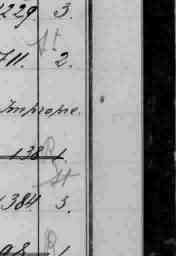 1229 3.
St
711. 2.
Imprope.
138 1
St
384 3.
98 1